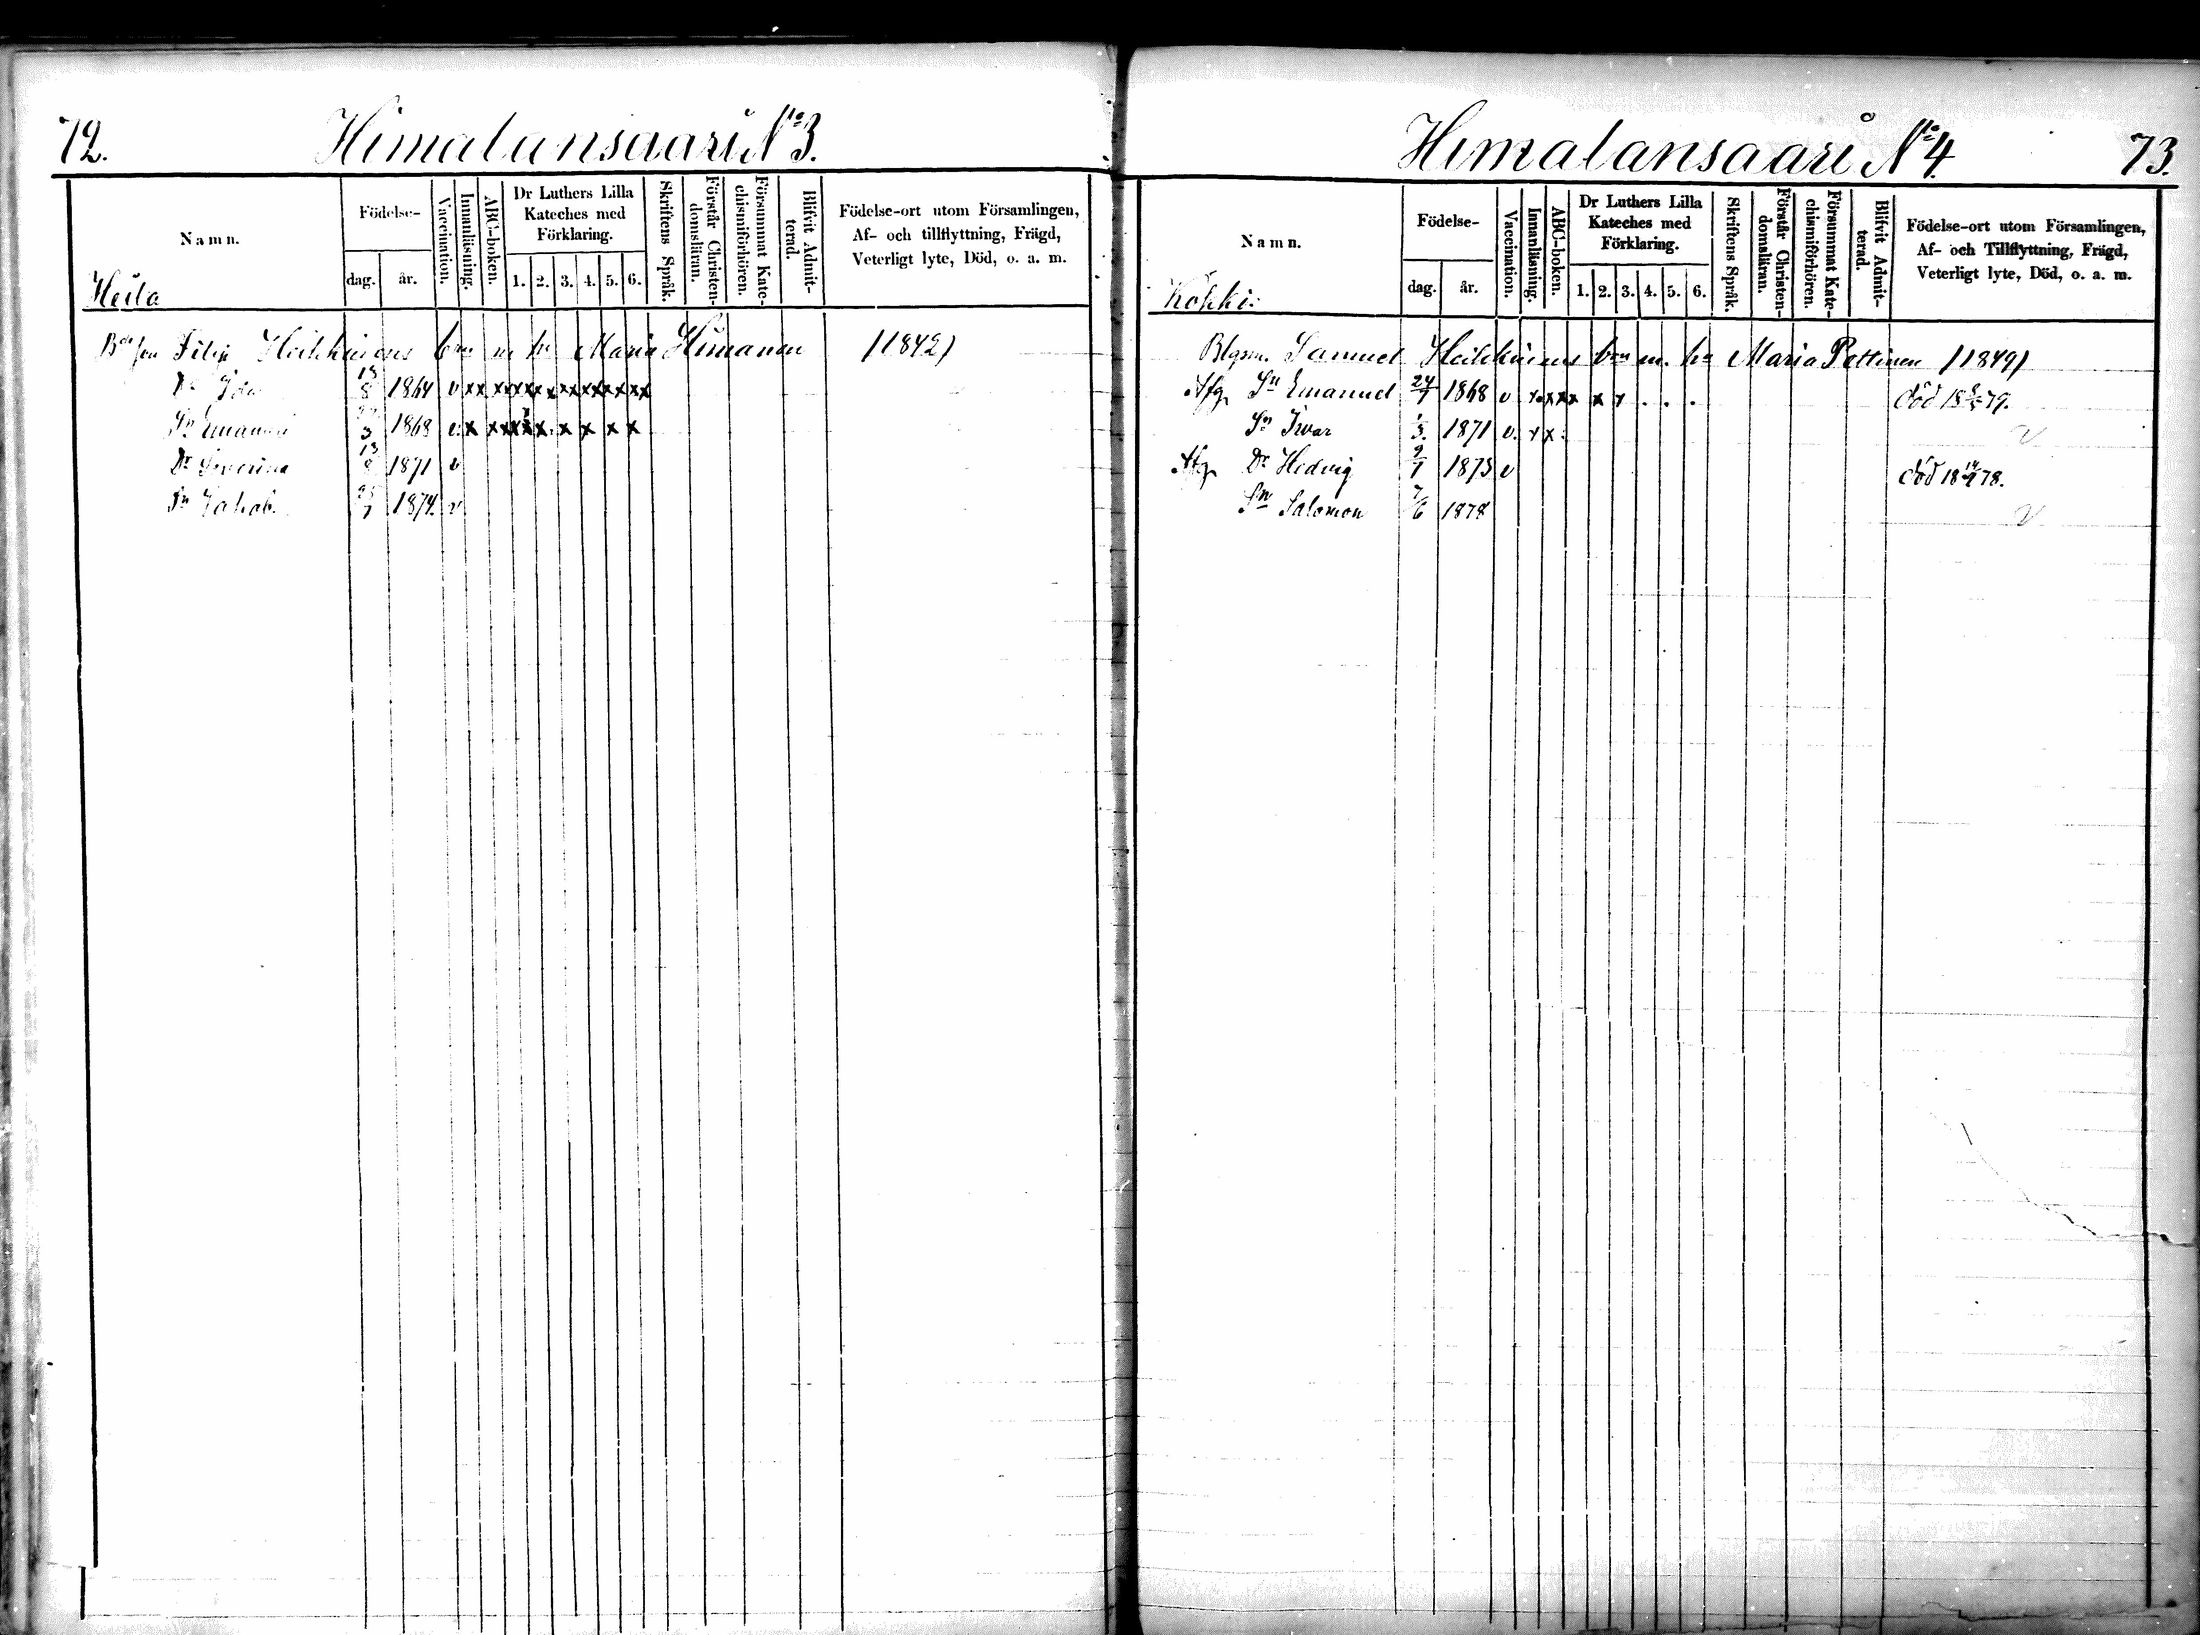 72.
Himalansaari No 3.
Namn.
Födelse-
dag. år.
Vaccination.
Innanläsning.
ABC-boken.
Dr Luthers Lilla Kateches med Förklaring.
1. 2. 3. 4. 5. 6.
Skriftens Språk.
Förstår Christen-domsläran.
Försummat Kate-chismiförhören.
Blifvit Admit-terad.
Födelse-ort utom Församlingen,
Af- och tillflyttning, Frägd,
Veterligt lyte, Död, o. a. m.
Heila
Filip Heikkinens barn m. h. Maria Himanen /1842/
Dr Ida 13/8 1864 v xx xxxxx xxxxxxxx
Sn Emanuel 3 1868 v. x xxxxx. x x x x
Dr Severina 13/8 1871 v
Sn Jakob. 25/7 1874. v
Himalansaari No 4.
73.
Namn.
Födelse-
dag. år.
Vaccination.
Innanläsning.
ABC-boken.
Dr Luthers Lilla Kateches med Förklaring.
1. 2. 3. 4. 5. 6.
Skriftens Språk.
Förstår Christen-domsläran.
Försummat Kate-chismiförhören.
Blifvit Admit-terad.
Födelse-ort utom Församlingen,
Af- och Tillflyttning, Frägd,
Veterligt lyte, Död, o. a. m.
Kokki:
Samuel Heikkinens barn m. h. Maria Pettinen /1849/
Afg. Sn Emanuel 24/7 1868 v x.xxx x x . . . död 18 79.
Sn Ivar 1/3. 1871 v. x x. v
Afg. Dr Hedvig 9/1 1873 v död 18 78.
Sn Salomon 7/6 1878 v